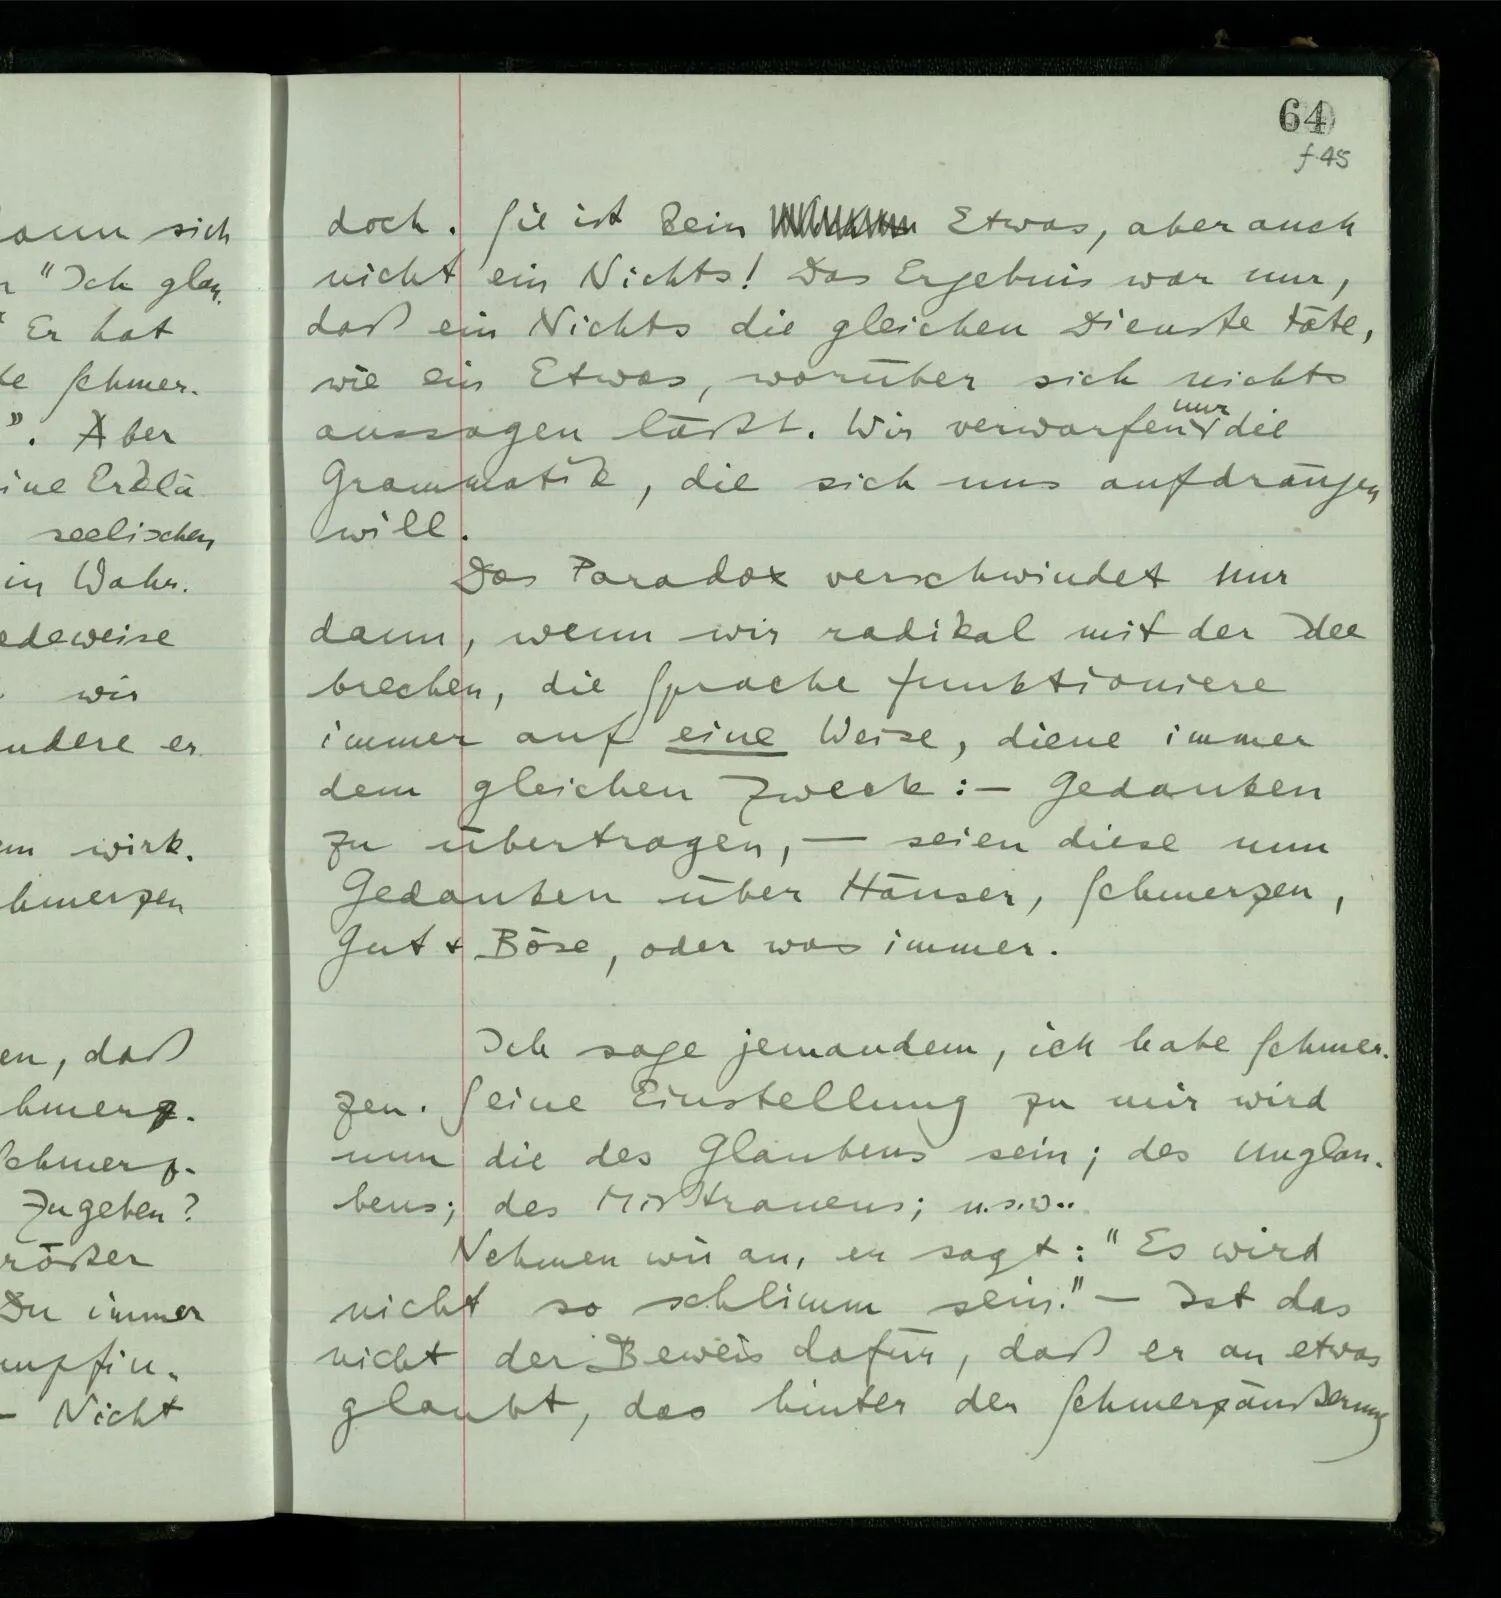 64
f 45
ann sich
"Ich glau.
Er hat
Schmer-
". Aber
ine Erklä
seelischen
in Wahr-
edeweise
wir
andere er
wirk-
hmerzen
en, daß
hmerz-
Schmerz-
zugeben?
rößer
Du immer
mpfin-
– Nicht
doch. Sie ist kein Etwas, aber auch
nicht ein Nichts! Das Ergebnis war nur,
daß ein Nichts die gleichen Dienste täte,
wie ein Etwas, worüber sich nichts
aussagen läßt. Wir verwarfen nur die
Grammatik, die sich uns aufdrängen
will.
Das Paradox verschwindet nur
dann, wenn wir radikal mit der Idee
brechen, die Sprache funktioniere
immer auf eine Weise, diene immer
dem gleichen Zweck: – Gedanken
zu übertragen, – seien diese nun
Gedanken über Häuser, Schmerzen,
Gut & Böse, oder was immer.
Ich sage jemandem, ich habe Schmer-
zen. Seine Einstellung zu mir wird
nun die des Glaubens sein; des Unglau-
bens; des Mißtrauens; u.s.w..
Nehmen wir an, er sagt: "Es wird
nicht so schlimm sein." – Ist das
nicht der Beweis dafür, daß er an etwas
glaubt, das hinter der Schmerzäußerung